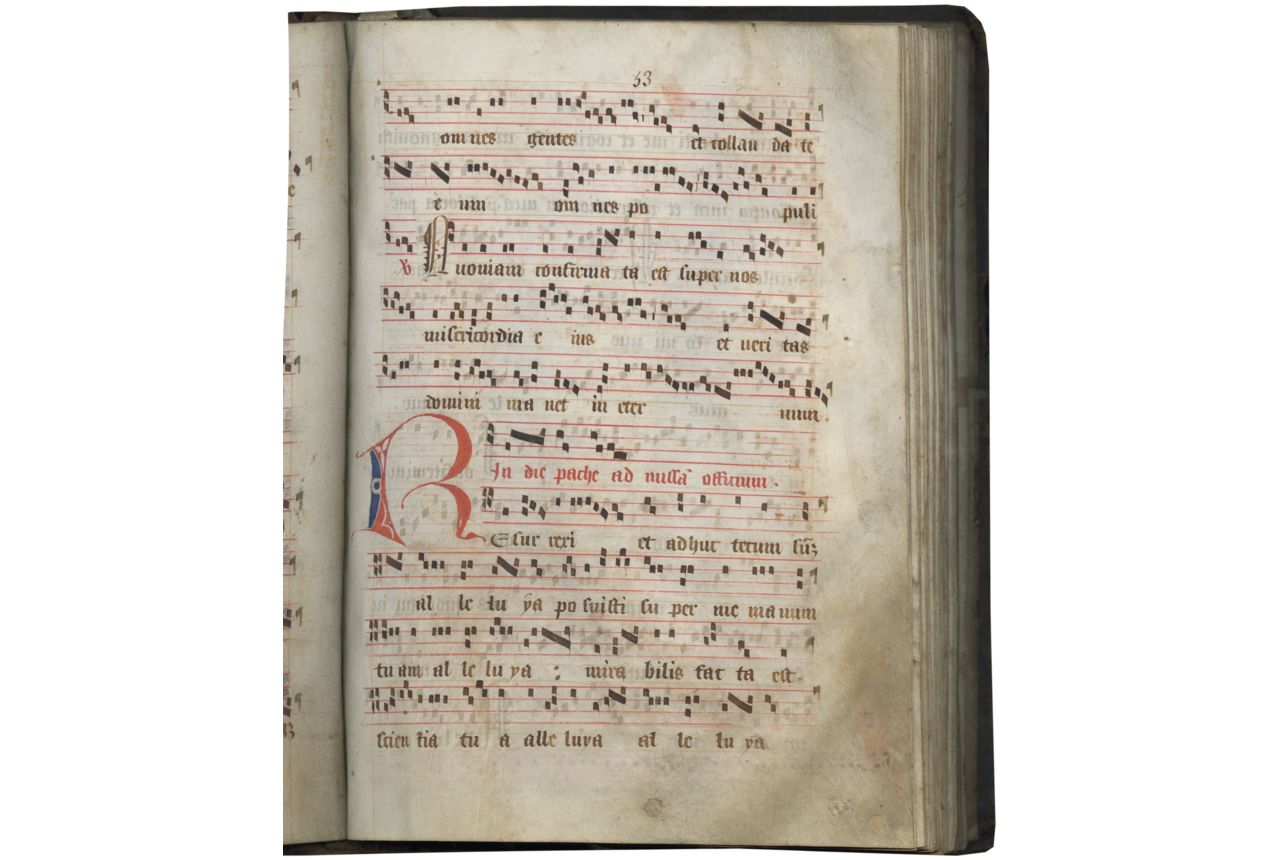 53
omnes gentes et collau da te
e um om nes po puli
℣ Quoniam confirma ta est super nos
misericordia e ius et veri tas
domini ma net in eter num .
In die pache ad missā officium .
REsur rexi et adhuc tecum sūʒ
al le lu ya po suisti su per me manum
tuam al le lu ya : mira bilis fac ta est .
scien tia tu a alle luya al le lu ya